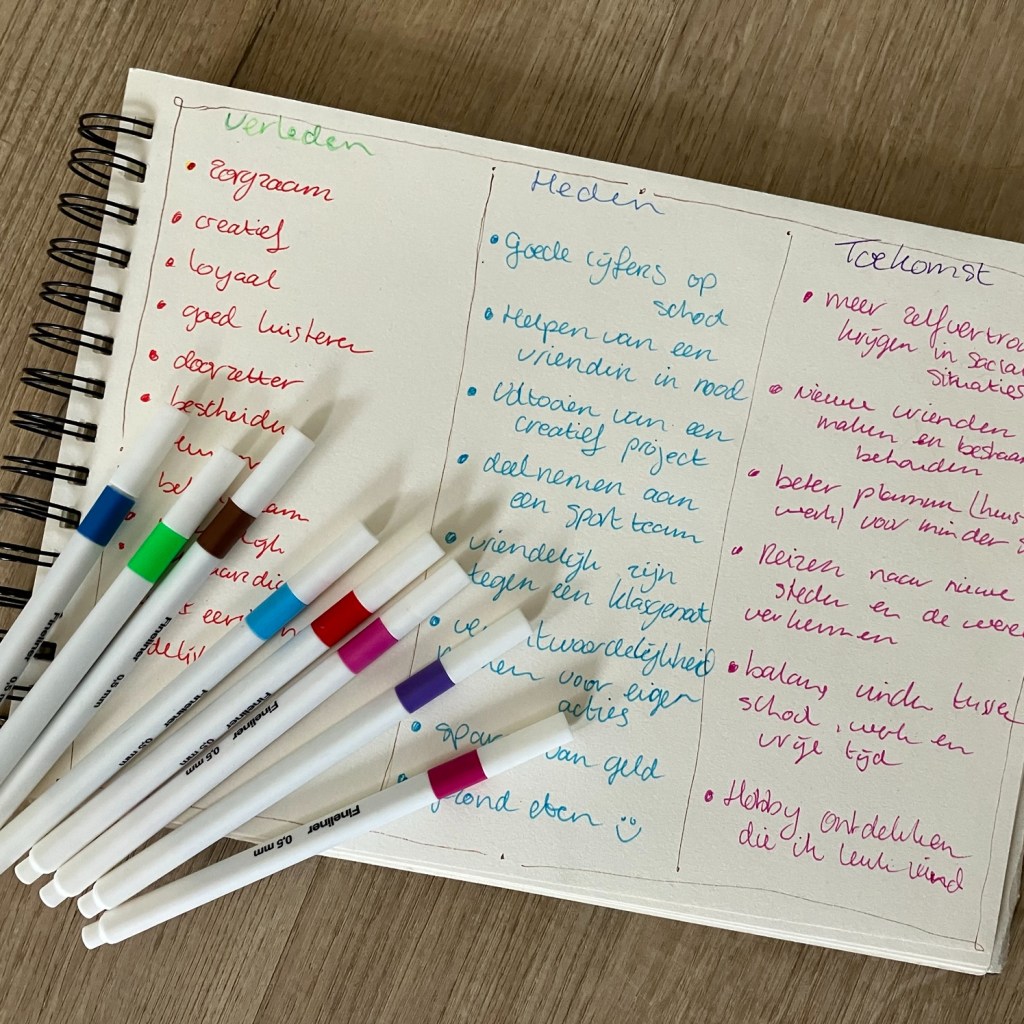 Verleden
• zorgzaam
• creatief
• loyaal
• goed luisteren
• doorzetter
• bescheiden
Heden
• Goede cijfers op
school
• Helpen van een
vriendin in nood
• Uitvoeren van een
creatief project
• deelnemen aan
een sportteam
• vriendelijk zijn
tegen een klasgenoot
voor eigen
acties
van geld
eten
Toekomst
• meer
krijgen in
situaties
• Nieuwe vrienden
maken en
behouden
• beter plannen
voor minder
• Reizen naar nieuwe
steden en de
verkennen
• balans vinden
school, werk en
vrije tijd
• Hobby ontdekken
die ik leuk vind
Fineliner
0,5 mm
Fineliner
0,5 mm
Fineliner
0,5 mm
Fineliner
0,5 mm